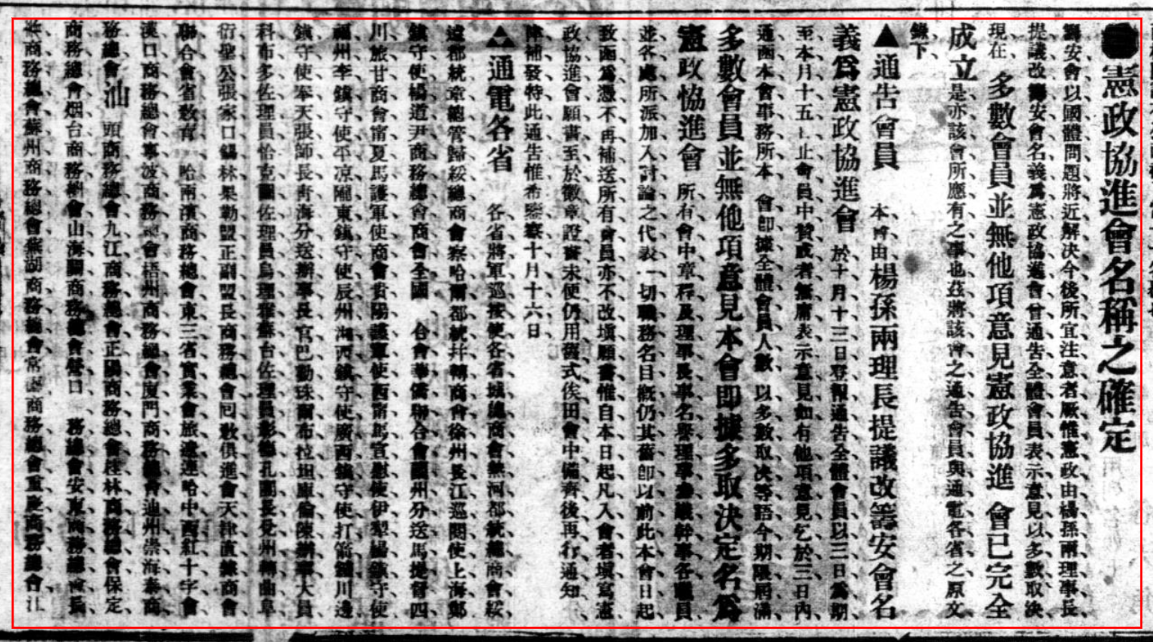 ●憲政協進會名稱之確定
籌安會以國體問題將近解決今後所宜注意者厥惟憲政由楊孫兩理事長
提議改籌安會名義爲憲政協進會曾通告全體會員表示意見以多數取決
現在多數會員並無他項意見憲政協進會已完全
成立是亦該會所應有之事也茲將該會之通告會員與通電各省之原文
錄下
▲通告會員 本會由楊孫兩理長提議改籌安會名
義爲憲政協進會於十月十三日登報通告全體會員以三日爲期
至本月十五日止會員中贊成者無庸表示意見如有他項意見乞於三日內
通函本會事務所本會即據全體會員人數以多數取決等語今期限屆滿
多數會員並無他項意見本會即據多取決定名爲
憲政協進會所有會中章程及理事長事名譽理事參議幹事各職員
並各處所派加入討論之代表一切職務名目概仍其舊卽以前此本會日起
致函爲憑不再補送所有會員亦不改塡願書惟自本日起凡入會者塡寫憲
政協進會願書至於徽章證書未使仍用舊式俟由會中備齊後再行通知
陣補發特此通告惟希鑒察十月十六日
▲通電各省 各省將軍巡按使各省城總商會熱河都統總商會綏
遠都統章總管歸綏總商會察哈爾都統幷轉商會徐州長江巡閱使上海鄭
鎮守使楊道尹商務總會商會全國 合會華僑聯合會 州分送馬提督四
川旅甘商會甯夏馬護軍使商會貴陽護軍使西甯馬宣慰使伊犁楊鎮守使
福州李鎮守使平凉隴東鎮守使辰州湘西鎮守使廣西鎮守使打箭鑪川邊
鎮守使奉天張師長靑海分送辦事長官巴勒珠爾布拉坦庫倫陳辦事大員
科布多佐理員恰克圖佐理員烏理雅蘇台佐理員彰德孔 長兗州 曲阜
衍聖公張家口錫林果勒盟正副盟長商務總會回敎俱進會天津直隸商會
聯合會省敎育 哈爾濱商務總會東三省實業會旅 哈中西紅十字會
漢口商務總會寧波商務總會梧州商務總會廈門商務總會通州崇海泰商
務總會汕頭商務總會九江商務總會正陽商務總會吉林商務總會保定
商務總會烟台商務總會山海關商務總會營口 務總會安東商務總會長
 商務總會蘇州商務總會蕪湖商務總會常 商務總會重慶商務總會江